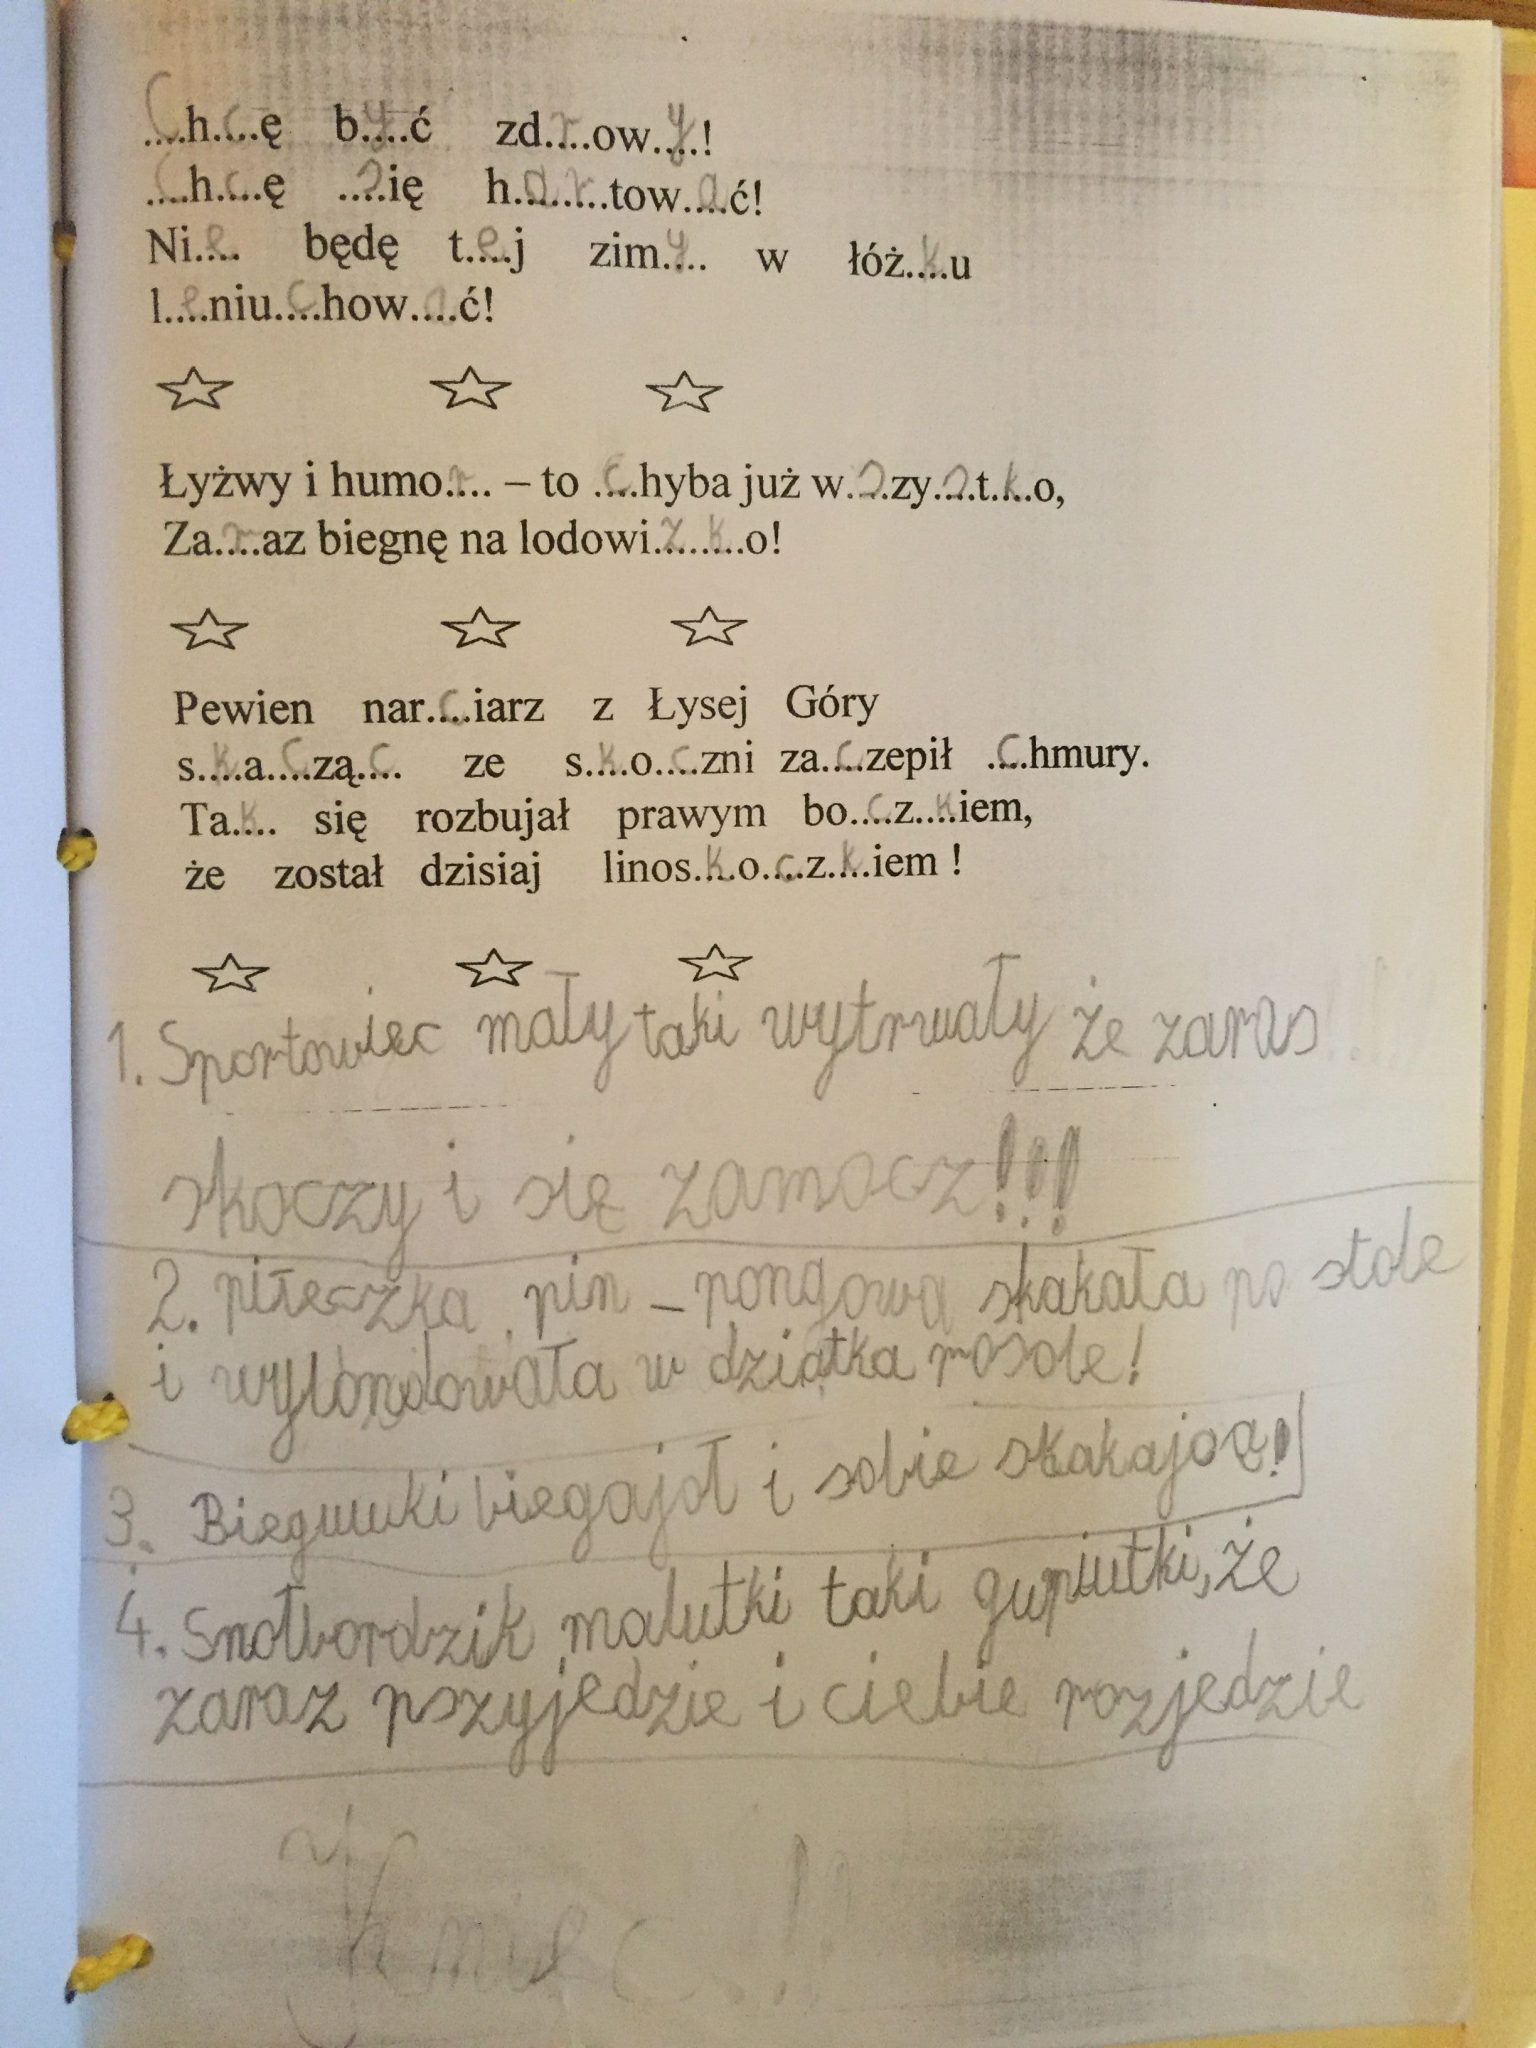 Chcę być zdrowy!
Chcę się hartować!
Nie będę tej zimy w łóżku
leniuchować!
Łyżwy i humor – to chyba już wszystko,
Zaraz biegnę na lodowizko!
Pewien narciarz z Łysej Góry
skacząc ze skoczni zaczepił chmury.
Tak się rozbujał prawym boczkiem,
że został dzisiaj linoskoczkiem !
1. Sportowiec mały taki wytrwały że zaras
skoczy i się zamocz!!!
2. piłeczka pin - pongowa skakała po stole
i wylondowała w dziatka rosole!
3. Biegwuki biegajoł i sobie skakajoą!
4. Snołbordzik malutki taki gupiutki, że
zaraz pszyjedzie i ciebie rozjedzie
Koniec...!!